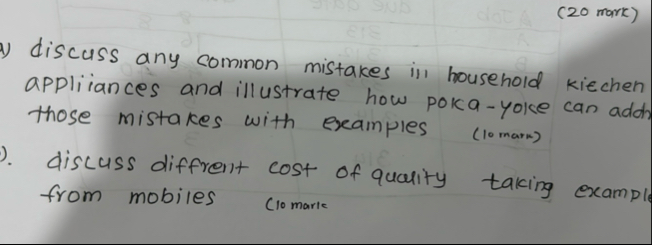 (20 mark)
a) discuss any common mistakes in household kiechen
appliiances and illustrate how poka-yoke can addr
those mistakes with examples (10 mark)
). discuss diffrent cost of quality taking example
from mobiles (10 mark